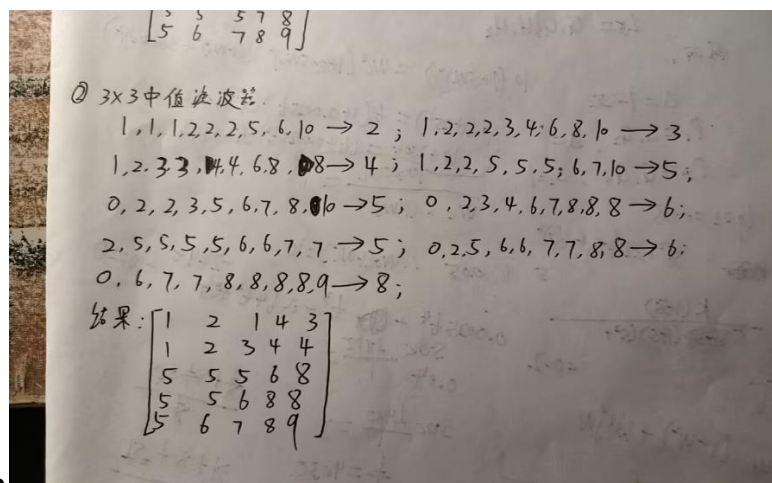 5 5 5 7 8
5 6 7 8 9
② 3×3中值滤波器:
1,1,1,2,2,2,5,6,10→2; 1,2,2,2,3,4,6,8,10→3.
1,2.3,3,4,4,6,8,8→4; 1,2,2,5,5,5,6,7,10→5;
0,2,2,3,5,6,7,8,10→5; 0,2,3,4,6,7,8,8,8→6;
2,5,5,5,5,6,6,7,7→5; 0,2,5,6,6,7,7,8,8→6;
0,6,7,7,8,8,8,8,9→8;
结果:
1 2 1 4 3
1 2 3 4 4
5 5 5 6 8
5 5 6 8 8
5 6 7 8 9